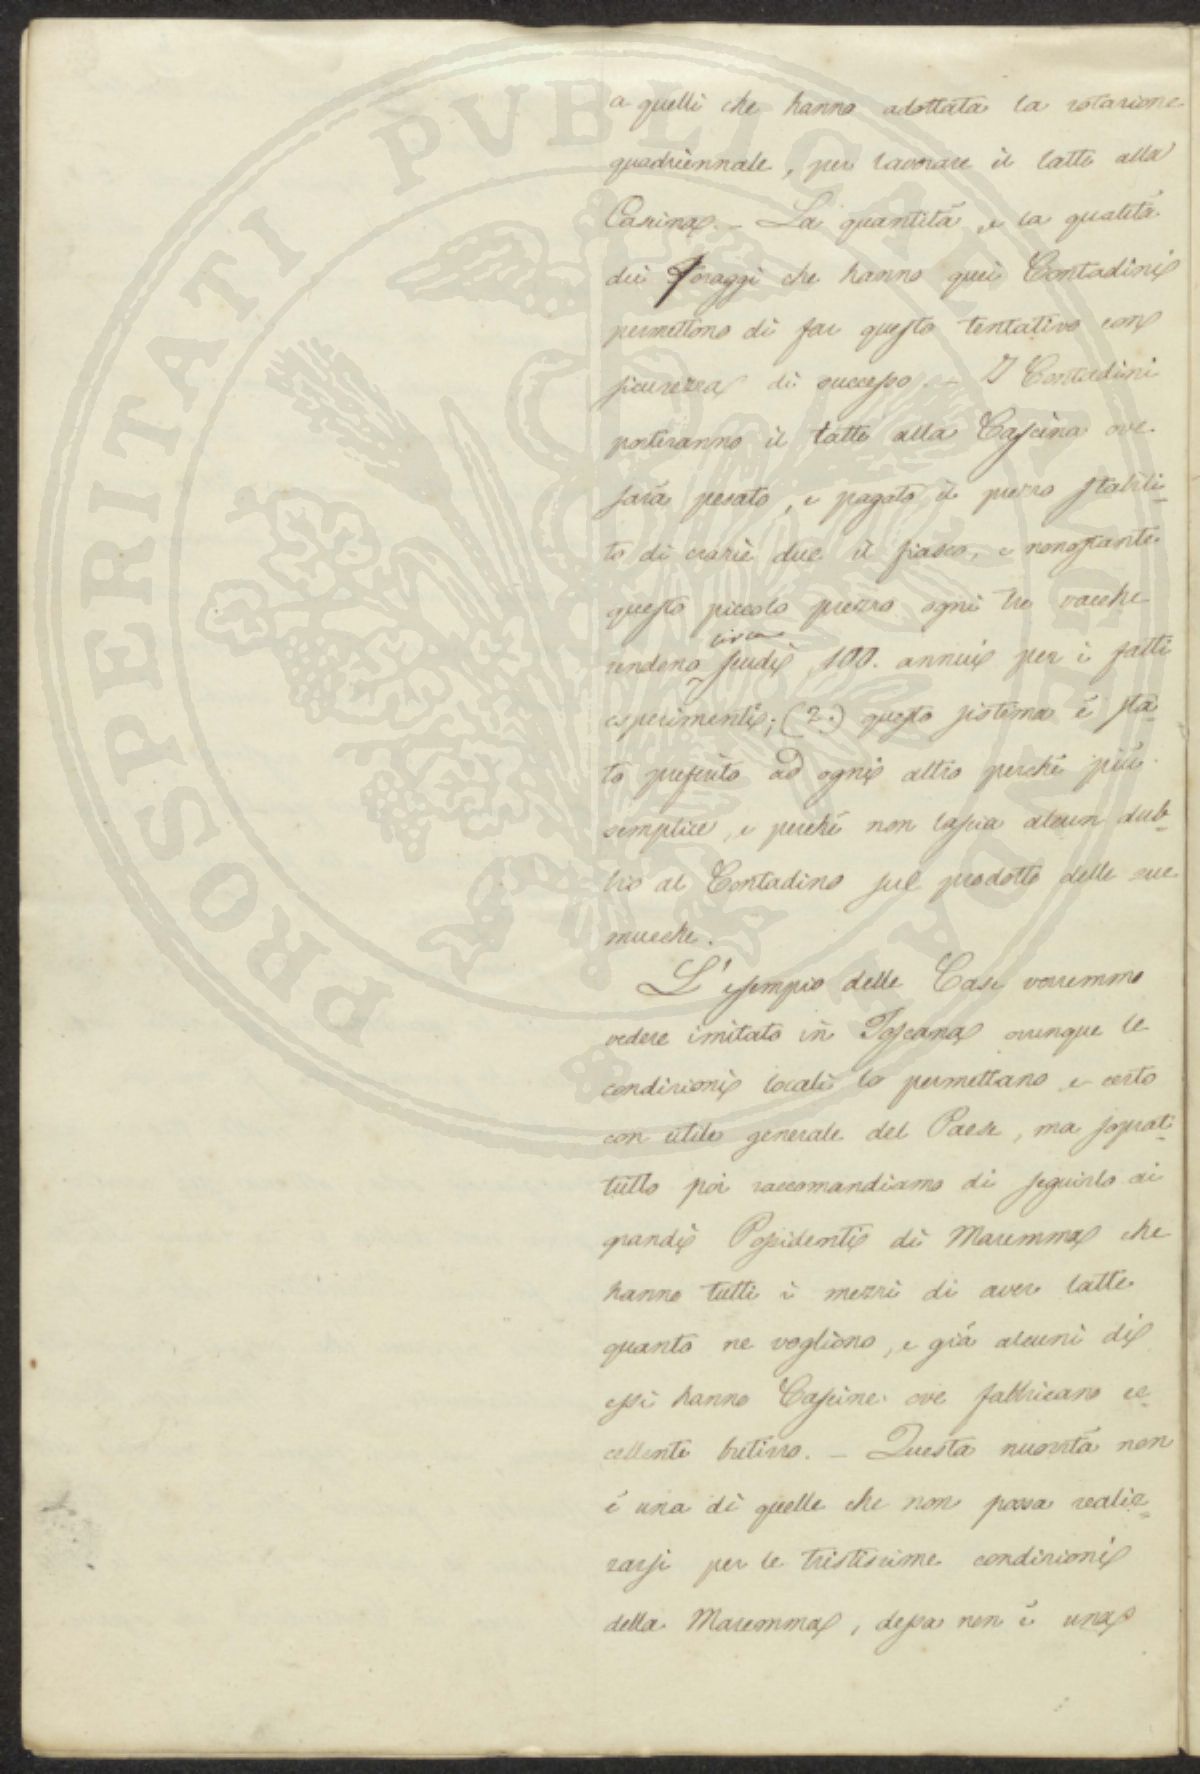 a quelli che hanno adottata la rotazione
quadriennale, per lavorare il latte alla
Cascina. – La quantità, e la qualità
dei Foraggi che hanno quei Contadini
permettono di far questo tentativo con
sicurezza di successo. – I Contadini
porteranno il latte alla Cascina ove
sarà pesato, e pagato il prezzo stabili-
to di crazie due il fiasco, e nonostante
questo piccolo prezzo ogni tre vacche
rendono circa scudi 100. annui per i fatti
esperimenti; (2.) questo sistema è sta-
to preferito ad ogni altro perchè più
semplice, e perchè non lascia alcun dub-
bio al Contadino sul prodotto delle sue
mucche.
L'esempio delle Case vorremmo
vedere imitato in Toscana ovunque le
condizioni locali lo permettano e certo
con utile generale del Paese, ma soprat-
tutto poi raccomandiamo di seguirlo ai
grandi Possidenti di Maremma che
hanno tutti i mezzi di aver latte
quanto ne vogliono, e già alcuni di
essi hanno Cascine ove fabbricano ec-
cellente butirro. – Questa nuovità non
è una di quelle che non possa realiz-
zarsi per le tristissime condizioni
della Maremma, dessa non è una
PROSPERITATI PUBLICAE AUGENDAE